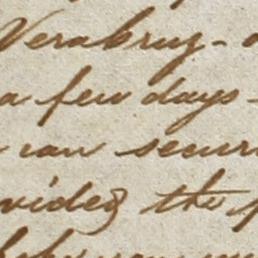 Verabruz -
a few days -
can secur
vided the